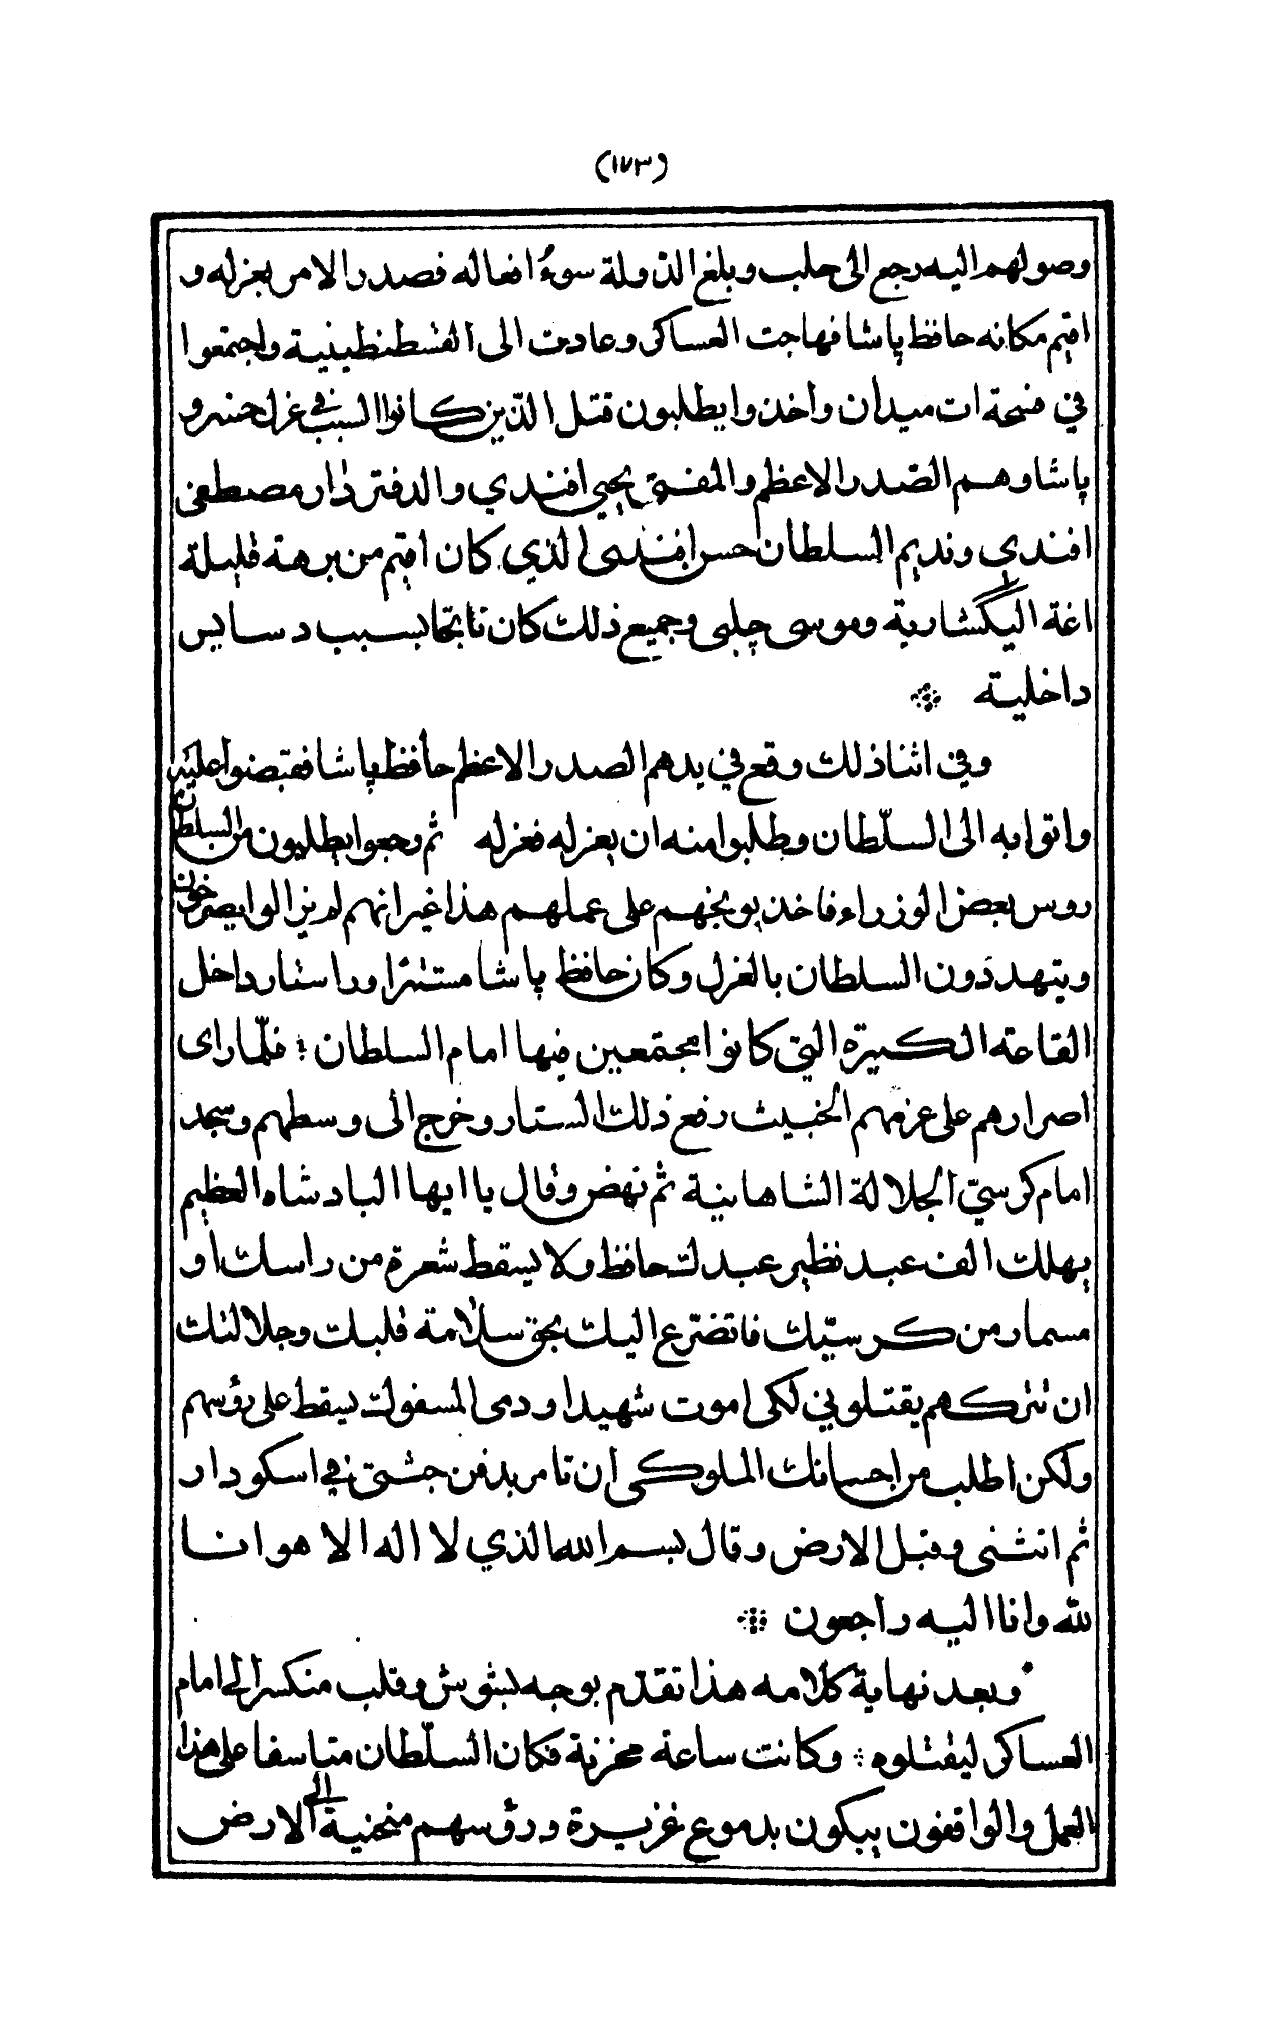 (١٧٣)
وصولهم اليه رجع الى حلب وبلغ الدّولة سوءُ افعاله فصدر الامر بعزله و
اقيم مكانه حافظ پاشا فهاجت العساكر وعادت الى القسطنطينية واجتمعوا
في فسحة ات ميدان واخذوا يطلبون قتل الذّين كانوا السبب في عزل خسرو
پاشا وهم الصّدر الاعظم والمفتي يحيى افندي والدفتردار مصطفى
افندي ونديم السلطان حسن افندى الذي كان اقيم من برهة قليلة
اغة اليكشارية وموسى چلبى وجميع ذلك كان ناتجًا بسبب دسايس
داخلية
وفي اثنا ذلك وقع في يدهم الصدر الاعظم حافظ پاشا فقبضوا عليه
واتوا به الى السلّطان وطلبوا منه ان يعزله فعزله ثم رجعوا يطلبون من السلطان
روس بعض الوزراء فاخذ يوبخهم على عملهم هذا غير انهم لم يزالوا يصرخون
ويتهددون السلطان بالعزل وكان حافظ پاشا مستترًا وراستار داخل
القاعة الكبيرة التي كانوا مجتمعين فيها امام السلطان ؛ فلمّا راى
اصرارهم على عزمهم الخبيث رفع ذلك الستار وخرج الى وسطهم وسجد
امام كرسيّ الجلالة الشاهانية ثم نهض وقال يا ايها البادشاه العظيم
يهلك الف عبد نظير عبدك حافظ ولا يسقط شعرة من راسك او
مسمار من كرسيّك فاتضرّع اليك بحق سلامة قلبك وجلالتك
ان تتركهم يقتلوني لكى اموت شهيدا ودمى المسفوك يسقط على رؤسهم
ولكن اطلب من احسانك الملوكى ان تامر بدفن جثتي في اسكودار
ثم انثنى وقبل الارض وقال بسم الله الذي لا اله الا هو انا
لله وانا اليه راجعون
وبعد نهاية كلامه هذا تقدّم بوجه بشوش وقلب منكسر الى امام
العساكر ليقتلوه ؛ وكانت ساعة محزنة فكان السلّطان متاسفا على هذا
العمل والواقفون يبكون بدموع غزيرة ورؤسهم منحنية الى الارض